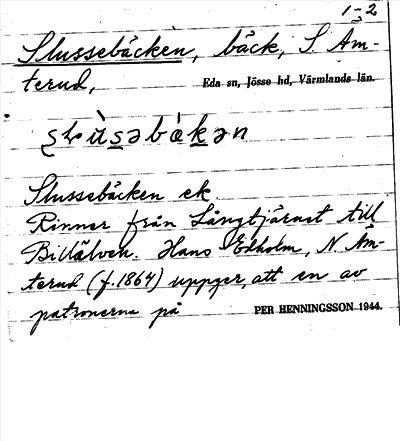 1-2
Slussebäcken, bäck, S. Åm-
terud,
Eda sn, Jösse hd, Värmlands län.
Slussebäcken ek
Rinner från Långtjärnet till
Billälven. Hans Ekholm, N. Åm-
terud (f. 1864) uppger, att en av
patronerna på
PER HENNINGSSON 1944.